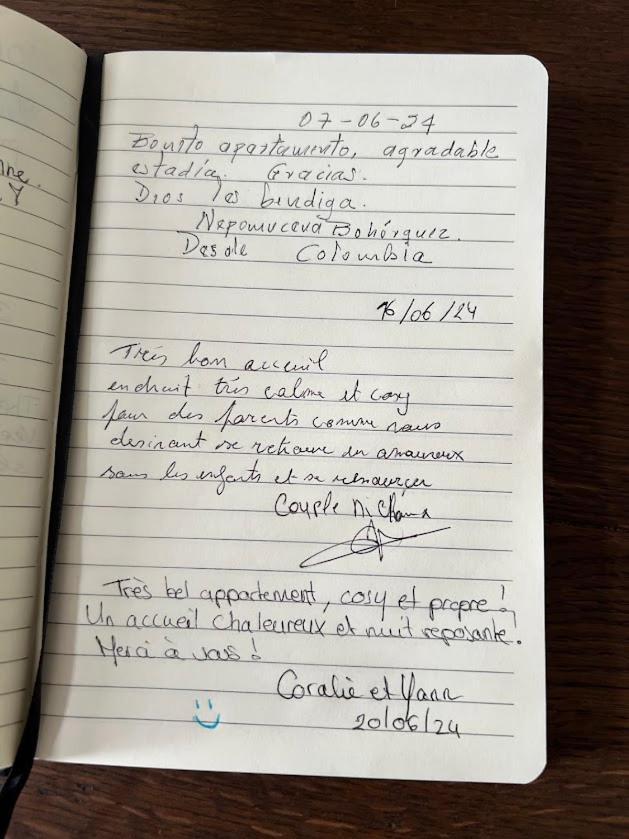 nne.
Y
07-06-24
Bonito apartamento, agradable
estadía. Gracias.
Dios les bendiga.
Nepomuceva Bohórquez.
Desde Colombia
16/06/24
Trés bon accueil
endruit trés calme et cosy
pour des parents comme nous
desirant se retrouve en amoureux
sans les enfants et se ressourçer
Couple
Très bel appartement, cosy et propre!
Un accueil chaleureux et nuit reposante.
Merci à vous!
Coralie et Yann
20/06/24